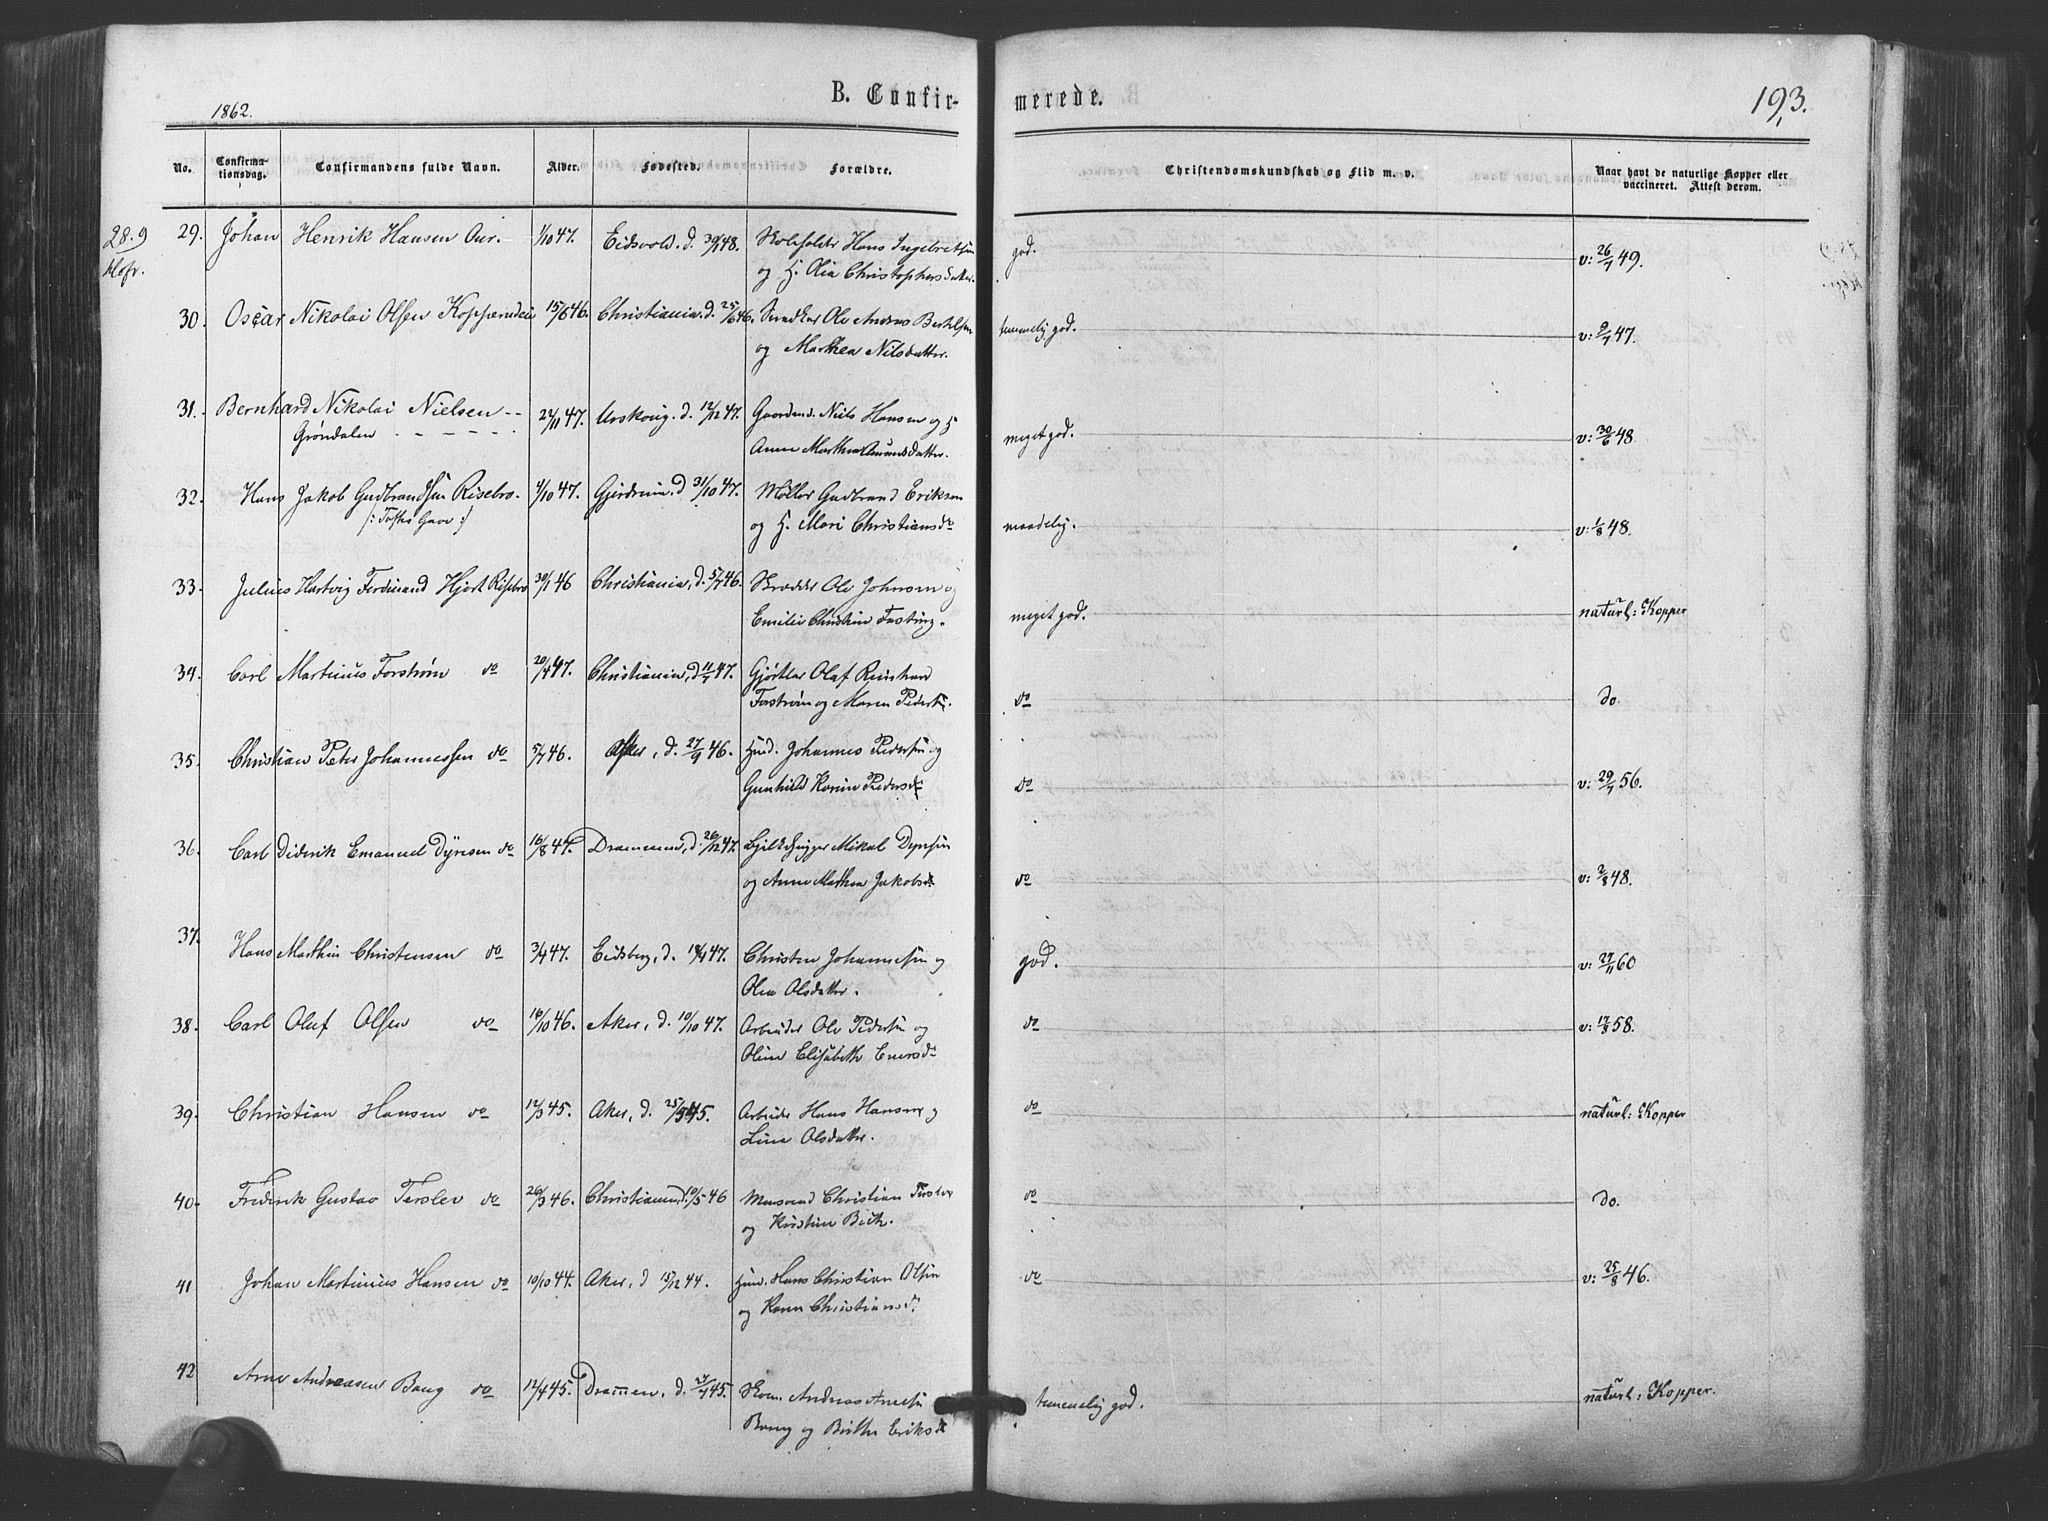 1862.
B. Confir-
merede.
193.
No.
Confirma-
tionsdag.
Confirmandens fulde Navn.
Alder.
Fødested.
Forældre.
Christendomskundskab og Flid m. v.
Naar havt de naturlige Kopper eller
vaccineret. Attest derom.
28.9
29. Johan Henrik Hansen Aur. 1/10 47. Eidsvold. d. 48. Hans Ingebretsen god. v: 26/7 49.
og H. Olia Christophersdatter.
30. Oscar Nikolai Olsen 15/6 46. Christiania. d. 25/6 46. Ole Andreas Bertelsen temmelig god. v: 9/7 47.
og Marthea Nilsdatter.
31. Bernhard Nikolai Nielsen -- 22/11 47. Urskoug. d. 12/12 47. Gaardmd. Niels Hansen og H meget god. v: 30/6 48.
Grøndalen
Anne Marthea Amundsdatter.
32. Hans Jakob Gudbrandsen Risebro. 4/10 47. Gjerdrum. d 31/10 47. Møller Gudbrand Eriksen maadelig. v: 1/8 48.
og H. Mari Christiansd
33. Julius Hartvig Ferdinand Hjort Risebro 30/1 46 Christiania, d. 5/7 46. Skrædder Ole Johnsen og meget god. naturl: Kopper
Emilie Christine Fasting.
34. Carl Martinius Forstrøm do 20/4 47. Christiania, d 11/7 47. Gjørtler Olaf Reinhard do do.
Forstrøm og Maren Peders
35. Christian Peter Johannessen do 5/7 46. Asker, d. 27/9 46. Huud. Johannes Pedersen og do v: 29/7 56.
Gunhild Karine Pedersd
36. Carl Diderik Emanuel Dyresen do 16/8 47. Drammen, d. 26/12 47. Mikal Dyresen do v: 2/8 48.
og Anne Mathea Jakobsd
37. Hans Marthin Christensen do 3/4 47. Eidsberg, d. 47. Christen Johannesen og god. v: 27/11 60
Olea Olsdatter.
38. Carl Oluf Olsen do 16/10 46. Aker, d. 10/10 47. Arbeider Ole Pedersen og do v: 17/3 58.
Oline Elisabeth
39. Christian Hansen do 12/3 45. Aker, d. 25/5 45. Arbeider Hans Hansen og do naturl: Kopper
Lina Olsdatter.
40. Frederik Gustav Terslev do 26/3 46. Christiania, d. 10/5 46 Christian Terslev do do.
og Kirstine Bech.
41 Johan Martinius Hansen do 10/10 44. Aker, d 15/12 44. Huud. Hans Christian Olsen do v: 25/8 46.
og Karen Christiansd
42 Arne Andreasen Baug do 12/4 45. Drammen, d. 27/7 45. Andreas Arnesen temmelig god. naturl: Kopper.
Baug og Birthe Eriksd